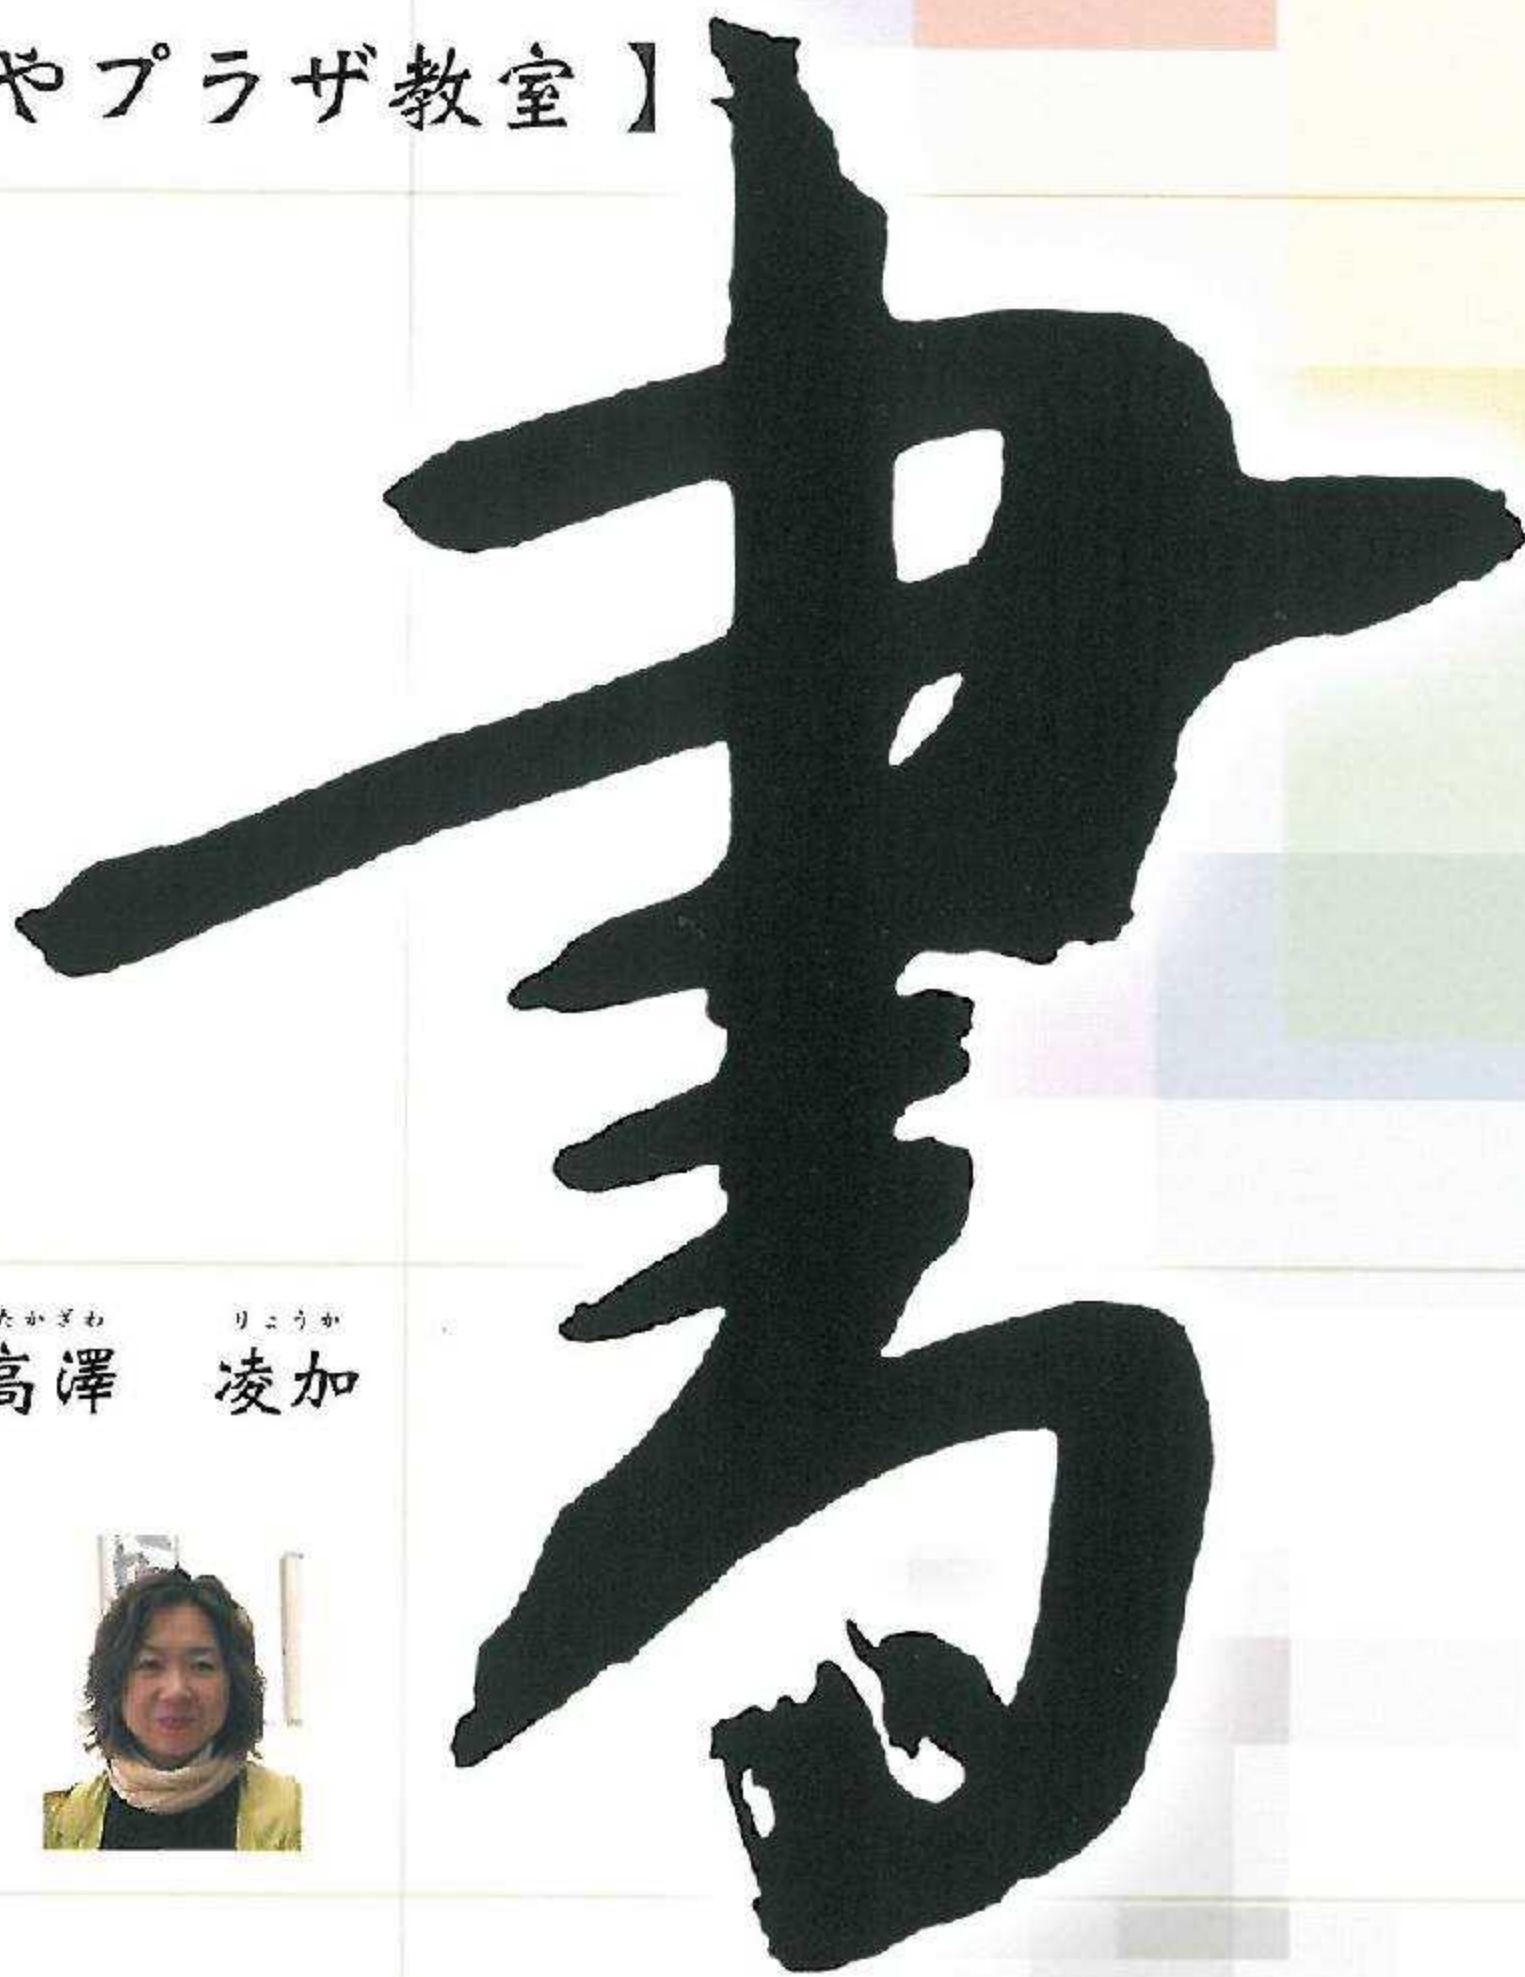 やプラザ教室】
書
たかざわ りょうか
高澤 凌加